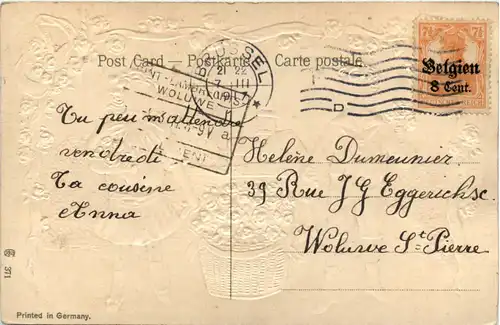 Post Card — Postkarte — Carte postale
BRÜSSEL
21 22
7-III
WOLUWE
Belgien
8 Cent.
7½ 7½
D
Tu peu m'attendre
vendredi
Ta cousine
Anna
Helène Dumeunier
39 Rue J G Eggerichse
Woluwe St Pierre
371
Printed in Germany.